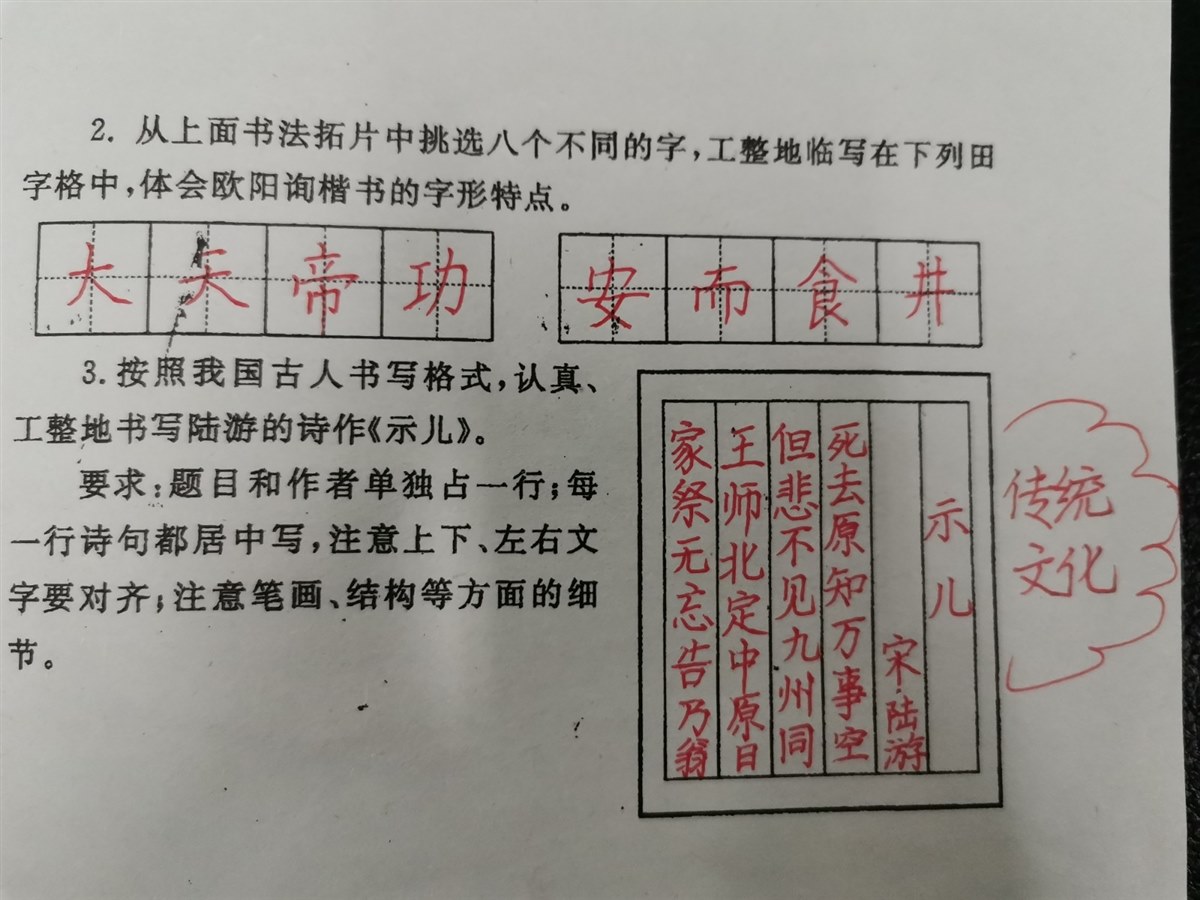 2. 从上面书法拓片中挑选八个不同的字，工整地临写在下列田
字格中，体会欧阳询楷书的字形特点。
大天帝功 安而食井
3. 按照我国古人书写格式，认真、
工整地书写陆游的诗作《示儿》。
要求：题目和作者单独占一行；每
一行诗句都居中写，注意上下、左右文
字要对齐；注意笔画、结构等方面的细
节。
示儿
宋·陆游
死去原知万事空
但悲不见九州同
王师北定中原日
家祭无忘告乃翁
传统
文化